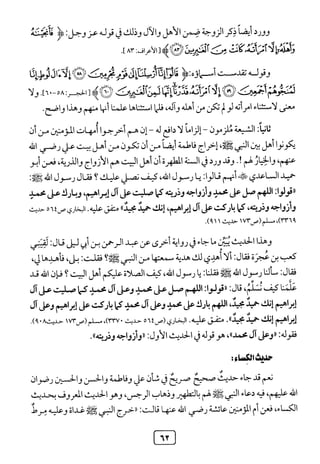 وورد أيضاً ذكر الزوجة ضمن الأهل والآل وذلك في قوله عز وجل: ﴿ فَأَنجَيْنَهُ
وَأَهْلَهُ إِلَّا امْرَأَتَهُ كَانَتْ مِنَ الْغَبِرِينَ ﴿٨٣﴾ ﴾ [الأعراف: ٨٣].
وقوله تقدست أسماؤه: ﴿ قَالُوا إِنَّا أُرْسِلْنَا إِلَى قَوْمٍ مُجْرِمِينَ ﴿٥٨﴾ إِلَّا ءَالَ لُوطٍ إِنَّا
لَمُنَجُّوهُمْ أَجْمَعِينَ ﴿٥٩﴾ إِلَّا امْرَأَتَهُ قَدَّرْنَا إِنَّهَا لَمِنَ الْغَبِرِينَ ﴿٦٠﴾ ﴾ [الحجر: ٥٨-٦٠]. ولا
معنى لاستثناء امرأته لو لم تكن من أهله وآله، فلما استثناها علمنا أنها منهم وهذا واضح.
ثانياً: الشيعة مُلزمون - إلزاماً لا دافع له - إن هم أخرجوا أمهات المؤمنين من أن
يكونوا أهل بين النبي ﷺ، إخراج فاطمة أيضاً من أن تكون من أهل بيت علي رضي الله
عنهم، والخيارُ لهم !. وقد ورد في السنة المطهرة أن أهل البيت هم الأزواج والذرية، فعن أبو
حميد الساعدي أنهم قالوا: يا رسول الله، كيف نصلي عليك ؟ فقال رسول الله ﷺ:
«قولوا: اللهم صل على محمدٍ وأزواجه وذريته كما صليت على آل إبراهيم، وبارك على محمدٍ
وأزواجه وذريته، كما باركت على آل إبراهيم، إنك حميدٌ مجيدٌ» متفق عليه. البخاري (ص٥٦٤ حديث
٣٣٦٩)، مسلم (ص١٧٣ حديث ٩١١).
وهذا الحديث يُبيِّنُ ما جاء في رواية أخرى عن عبد الرحمن بن أبي ليل قال: لَقِيَنِي
كعب بن عُجرَة فقال: ألا أُهدِي لك هدية سمعتها من النبي ﷺ؟ فقلت: بلى، فأهدها لي،
فقال: سألنا رسول الله ﷺ فقلنا: يا رسول الله، كيف الصلاة عليكم أهل البيت ؟ فإن الله قد
عَلَّمَنا كيف نُسَلِّمُ، قال: «قولوا: اللهم صل على محمدٍ وعلى آل محمدٍ كما صليت على آل
إبراهيم إنك حميدٌ مجيدٌ، اللهم بارك على محمدٍ وعلى آل محمدٍ كما باركت على إبراهيم وعلى آل
إبراهيم إنك حميدٌ مجيدٌ». متفق عليه. البخاري (ص٥٦٤ حديث ٣٣٧٠)، مسلم (ص١٧٣ حديث٩٠٨).
فقوله: «وعلى آل محمد»، هو قوله في الحديث الأول: «وأزواجه وذريته».
حديثُ الكِساء:
نعم قد جاء حديثٌ صحيحٌ صريحٌ في شأن علي وفاطمة والحسن والحسين رضوان
الله عليهم، فيه دعاء النبي ﷺ لهم بالتطهير وذهاب الرجس، وهو الحديث المعروف بحديث
الكساء، فعن أم المؤمنين عائشة رضي الله عنها قالت: «خرج النبي ﷺ غداة وعليه مِرطٌ
٦٢